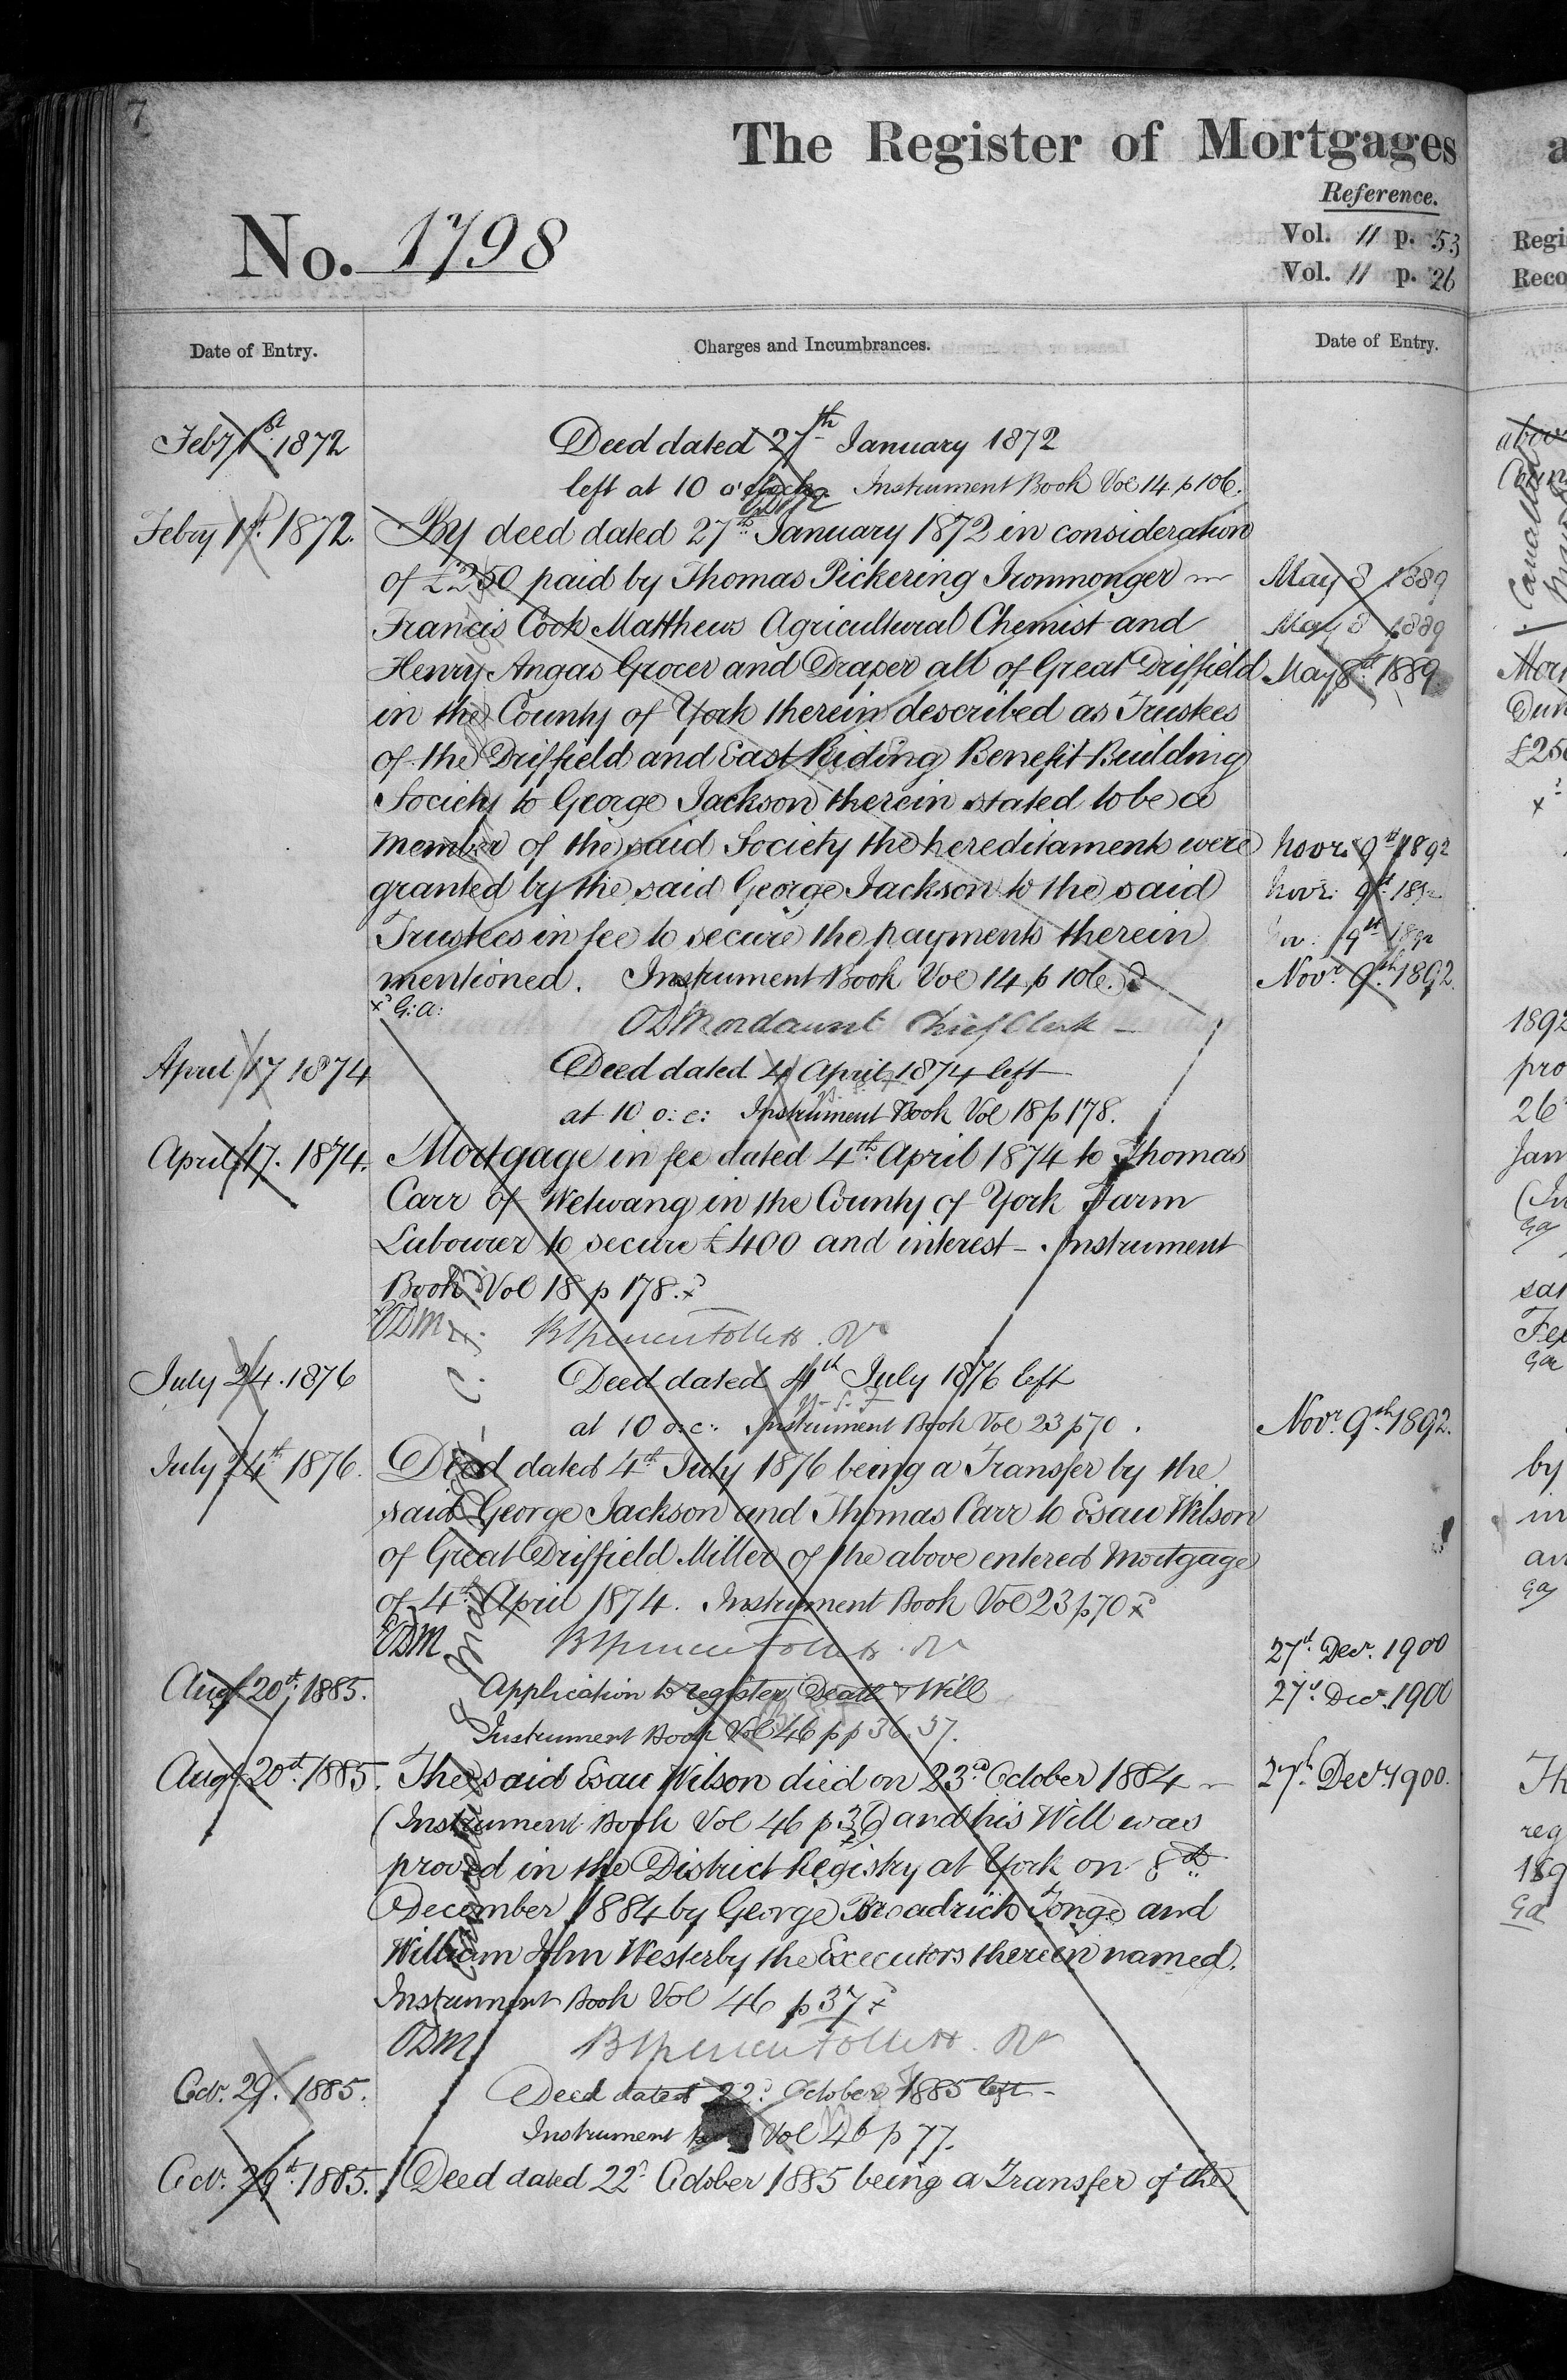 7
The Register of Mortgages
Reference.
No. 1798
Vol. 11 p. 53
Vol. 11 p. 26
Date of Entry.
Charges and Incumbrances.
Date of Entry.
Feby 1st 1872
Deed dated 27th January 1872
left at 10 o'clock. Instrument Book Vol 14 p 106.
Febry 1st. 1872.
By deed dated 27th January 1872 in consideration
of £250 paid by Thomas Pickering Ironmonger
Francis Cook Matthews Agricultural Chemist and
Henry Angas Grocer and Draper all of Great Driffield
in the County of York therein described as Trustees
of the Driffield and East Riding Benefit Building
Society to George Jackson therein stated to be a
member of the said Society the hereditament were
granted by the said George Jackson to the said
Trustees in fee to secure the payments therein
mentioned. Instrument Book Vol 14 p 106.
x G: a:
ODMordaunt Chief Clerk
April 17 1874
Deed dated 4 April 1874 left
at 10 o: c: Instrument Book Vol 18 p 178.
April 17. 1874.
Mortgage in fee dated 4th April 1874 to Thomas
Carr of Wetwang in the County of York Farm
Labourer to secure £400 and interest - Instrument
Book Vol 18 p 178.
ODM
July 24. 1876
Deed dated 4th July 1876 left
at 10 o: c: Instrument Book Vol 23 p 70.
July 24th 1876.
Deed dated 4th July 1876 being a Transfer by the
said George Jackson and Thomas Carr to Esau Wilson
of Great Driffield Miller of the above entered Mortgage
of 4th April 1874. Instrument Book Vol 23 p 70
ODM
Augt 20th 1885.
Application to register Death & Will
Instrument Book Vol 46 pp 36. 37.
Augt 20th 1885.
The said Esau Wilson died on 23rd October 1884
(Instrument Book Vol 46 p 36) and his Will was
proved in the District Registry at York on 8th
December 1884 by George Broadrick Tonge and
William John Westerby the Executors therein named.
Instrument Book Vol 46 p 37
ODM
Oct. 29. 1885.
Deed dated 22d October 1885 left
Instrument Vol 46 p 77.
Oct. 29th 1885.
Deed dated 22d October 1885 being a Transfer of the
May 8 1889
May 8 1889
May 8th 1889
Novr. 9th 1892
Novr. 9th
9th 1892
Novr. 9th 1892.
Novr. 9th 1892.
27th Decr. 1900
27th Decr. 1900
27th Decr. 1900.
Regi
Reco
£25
1892
pro
26
Jan
by
reg